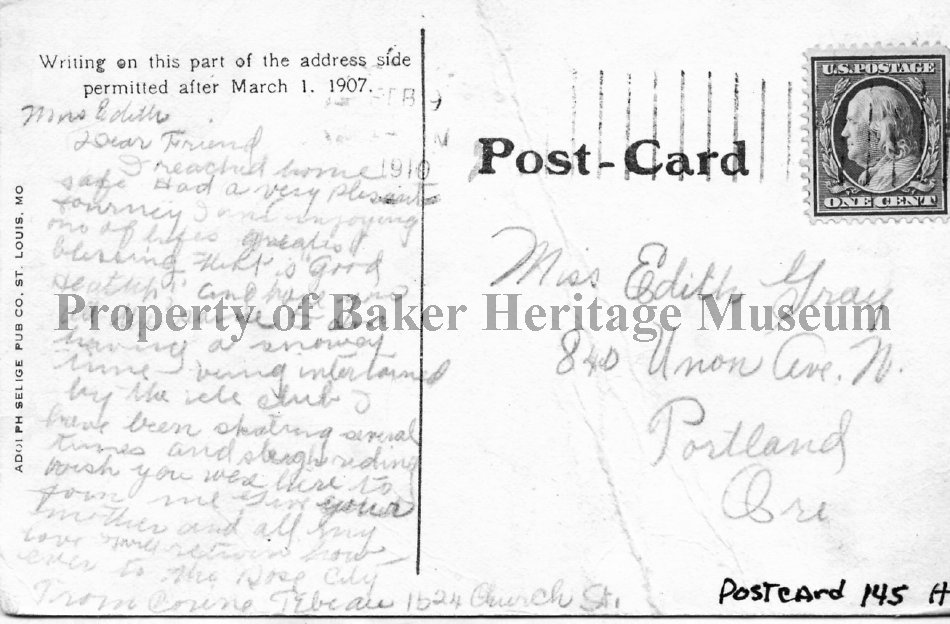 Writing on this part of the address side
permitted after March 1, 1907.
FEB 9
1910
Post-Card
U.S. POSTAGE
ONE CENT
Miss Edith
Dear Friend
I reached home
safe Had a very pleasant
journey I am enjoying
one of lifes greatest
blessing that is "Good
Health"
Property of Baker Heritage Museum
having a
time being intertained
by the club I
have been skating several
times and sleigh riding
wish you were here to
join me Give your
mother and all my
love return how
ever to the Rose City
From Tebeau 1524 Church St.
Miss Edith Gray
840 Union Ave. N.
Portland
Ore
ADOLPH SELIGE PUB CO. ST. LOUIS, MO
Postcard 145 H